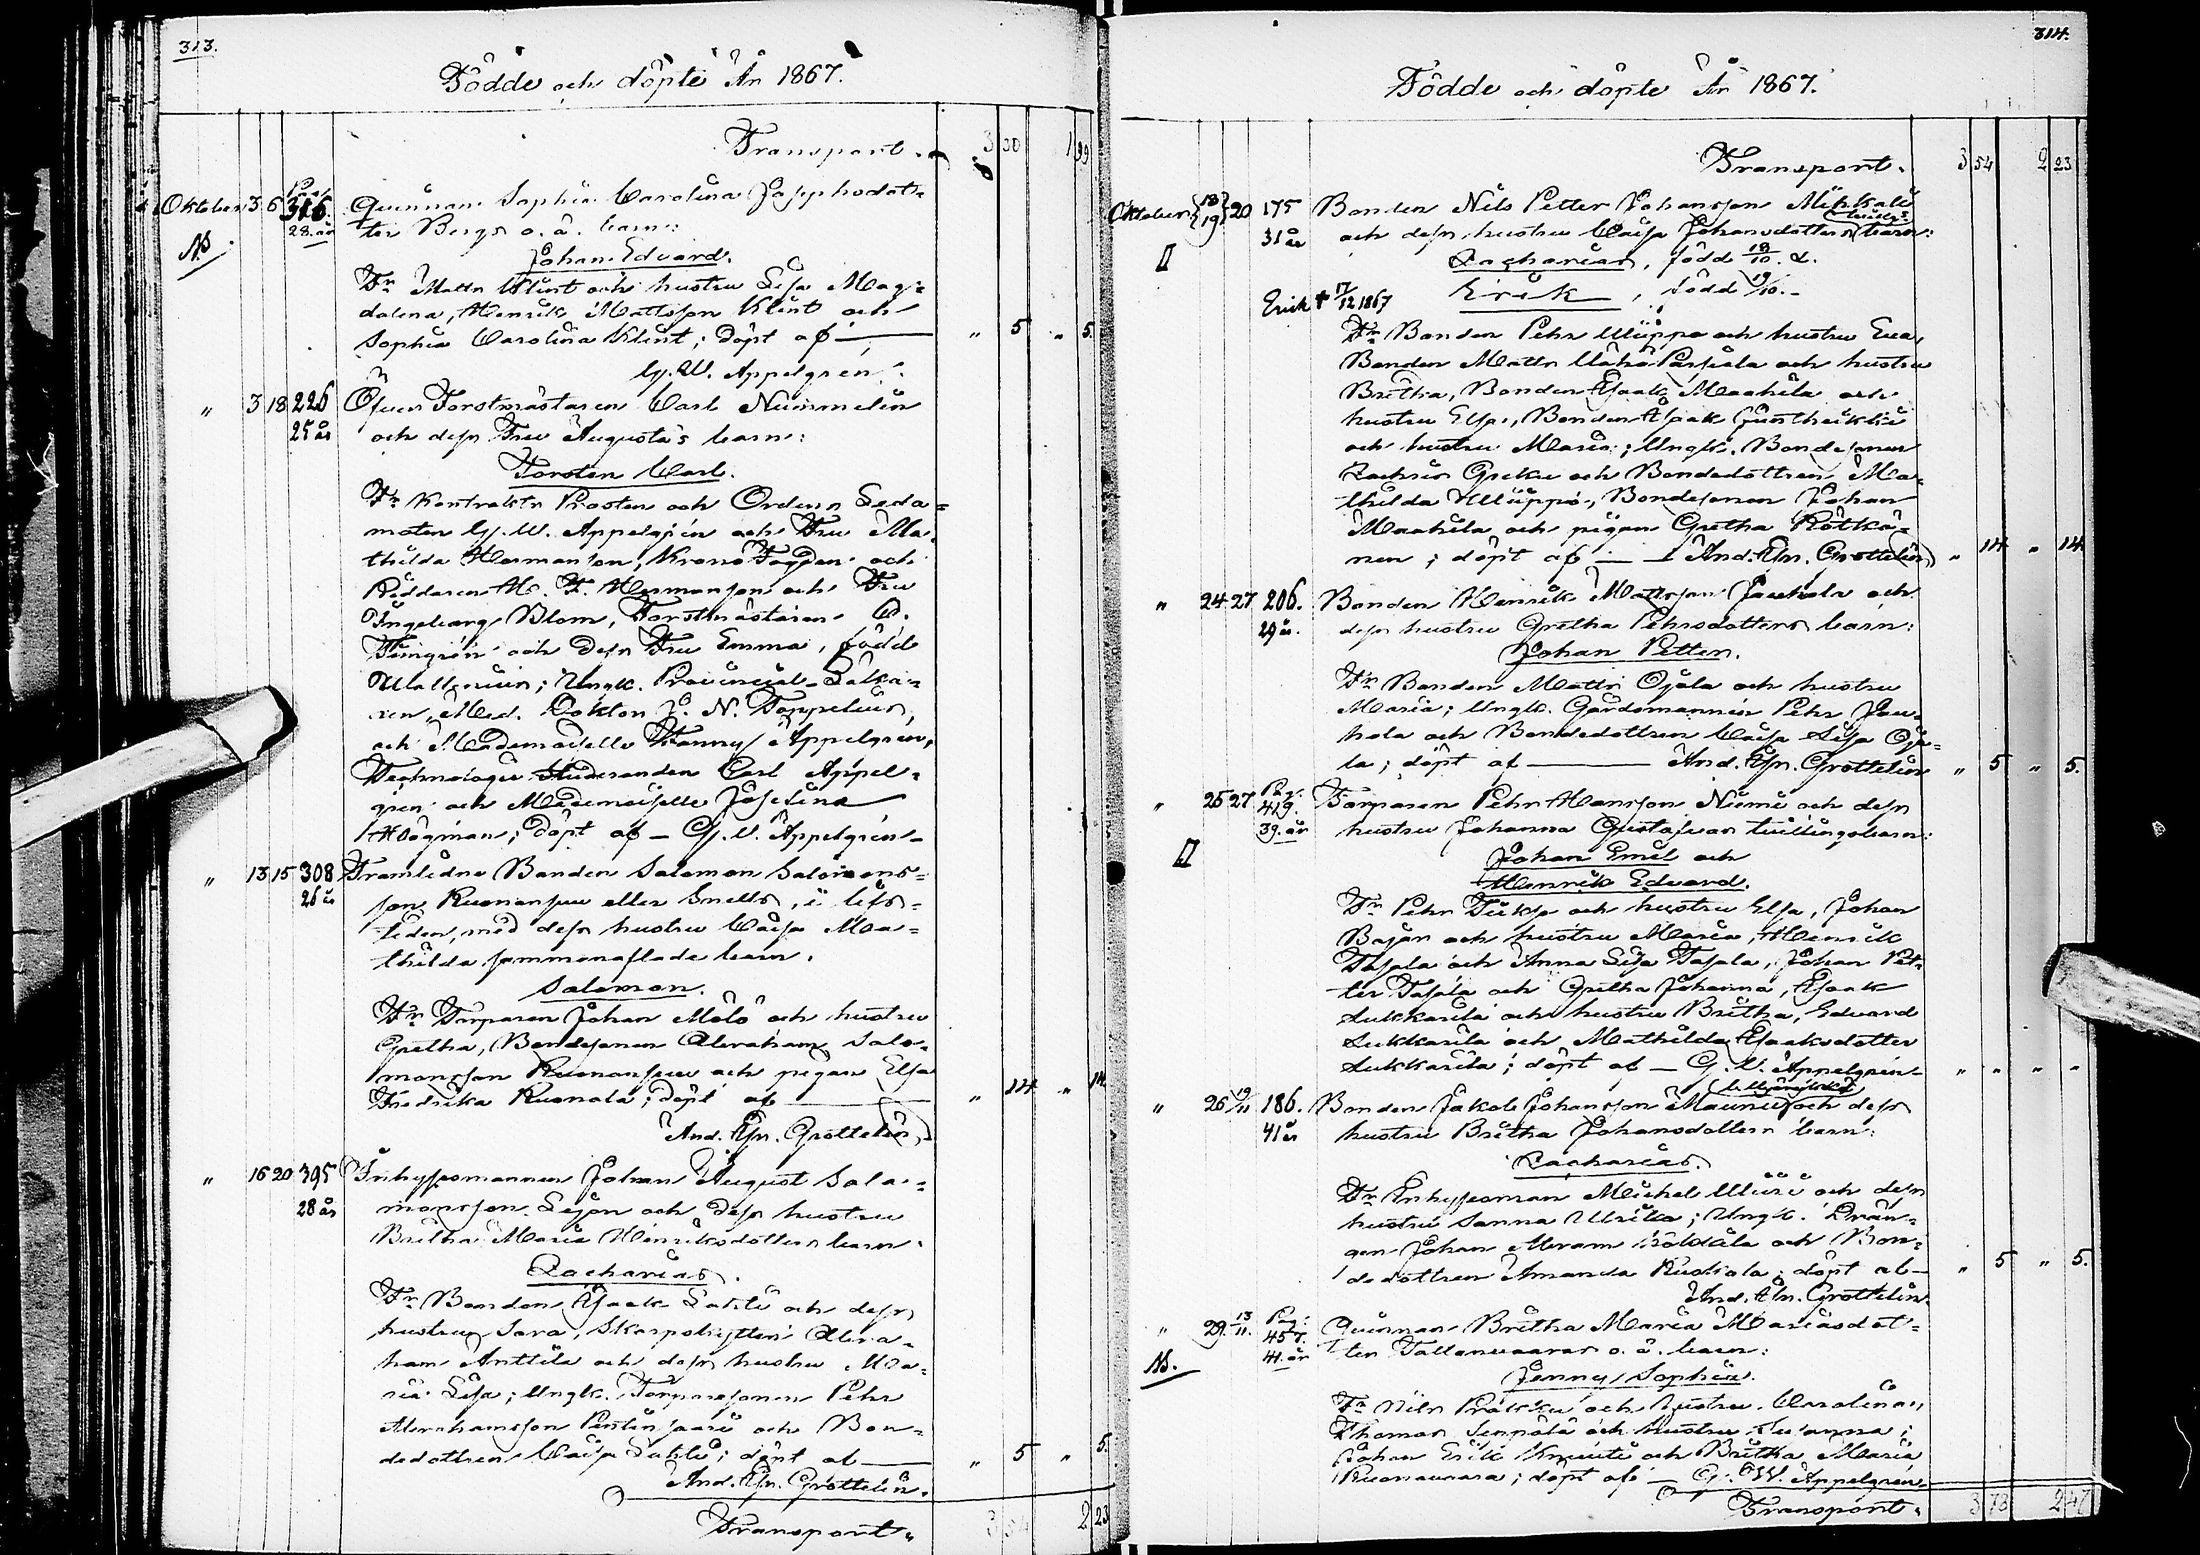 313.
Födde och döpte År 1867.
Transport. 3 30 1 99
Oktober 3 6 Pag. 316. Qvinnan Sophia Carolina Josephsdot-
28. år ter Bergs o. ä. barn:
NB.
Johan Edvard.
Fr. Matts Klint och hustru Lisa Mag-
dalena, Henrik Mattsson Klint och
Sophia Carolina Klint; döpt af — " 5 " 5.
G. W. Appelgrén.
" 3 18 226 Öfver Forstmästaren Carl Nummelin
25 år och dess Fru Augusta's barn:
Torsten Carl.
Fr. Kontrakts Prosten och Ordens Leda-
moten G. W. Appelgrén och Fru Ma-
thilda Hermanson, Krono Fogden och
Riddaren M. F. Hermanson och Fru
Ingeborg Blom, Forstmästaren
och dess Fru Emma, född
Ungk. Provincial-Läka-
ren, Med. Doktor J. N. Toppelius,
och Mademoiselle Fanny Appelgrén,
Technologie Studeranden Carl Appel-
grén och Mademoiselle Josefina
Högman; döpt af — G. W. Appelgrén
" 13 15 308 Framlidne Bonden Salomon Salomons-
26 år son Ruonansuu eller Snells, i lifs-
tiden, med dess hustru Caisa Ma-
thilda sammanaflade barn.
Salomon.
Fr. Torparen Johan Mölö och hustru
Gretha, Bondesonen Abraham Salo-
monsson Ruonansuu och pigan Elsa
Fredrika Ruonala; döpt af — " 14 " 14
And. Efr. Grottelin,
" 16 20 395 Inhysesmannen Johan August Salo-
28 år monsson Lejon och dess hustru
Britha Maria Henriksdotters barn.
Zacharias.
Fr. Bonden Isaak Lahti och dess
hustru Sara, Skarpskytten Abra-
ham Anttila och dess hustru Ma-
ria Lisa; Ungk. Torparesonen Pehr
Abrahamsson Pentinsaari och Bon-
dedottren Caisa Lahti; döpt af — " 5 " 5.
And. Efr. Grottelin.
Transport. 3 54 2 23
314.
Födde och döpte År 1867.
Transport. 3 54 2 23
Oktober {18 19} 20 175 Bonden Nils Petter Johansson
31 år och dess hustru Caisa Johansdotters barn:
II Zacharias, född 18/10.
Erick † 17/12 1867 Erik, född 19/10.
Fr. Bonden Pehr Uliippo och hustru Eva,
Bonden Matts och hustru
Britha, Bonden Isaak Maahila och
hustru Elsa, Bonden Isaak Juntheikki
och hustru Maria; Ungk. Bondesonen
Zachris Greku och Bondedottren Ma-
thilda Uliippo, Bondesonen Johan
Maahila och pigan Gretha Rötkö-
nen; döpt af — And. Efr. Grottelin " 14 " 14
" 24 27 206. Bonden Henrik Mattsson Jauhola och
29 år. dess hustru Gretha Pehrsdotters barn:
Johan Petter.
Fr. Bonden Matts Ojala och hustru
Maria; Ungk. Gårdsmannen Pehr Jau-
hola och Bondedottren Caisa Lisa Oja-
la; döpt af — And. Efr. Grottelin " 5 " 5.
" 25 27 Pag. 419. Torparen Pehr Hansson Niemi och dess
39. år hustru Johanna Gustafvas tvillingsbarn:
II Johan Emil och
Henrik Edvard.
Fr. Pehr och hustru Elsa, Johan
Bajar och hustru Maria, Henrik
Tasala och Anna Lisa Tasala, Johan Pet-
ter Tasala och Gretha Johanna, Isaak
Sukkarila och hustru Britha, Edvard
Sukkarila och Mathilda Isaaksdotter
Sukkarila; döpt af — G. W. Appelgrén " " " "
" 26 10/11 186. Bonden Jakob Johansson Maunu och dess
41 år hustru Britha Johansdotters barn:
Zacharias.
Fr. Inhysesman Michel och dess
hustru Sanna Ulrika; Ungk. Drän-
gen Johan Abram och Bon-
dedottren Amanda Ruokola; döpt af — " 5 " 5.
And. Efr. Grottelin.
" 29. 13/11. Pag: 457. Qvinnan Britha Maria Mariasdot-
41. år ter Tallavaaras o. ä. barn:
NB.
Jenny Sophia.
Fr. Nils Präkku och hustru Carolina,
Thomas Seppälä och hustru Susanna;
Johan Erik Kniivilä och Britha Maria
Ruonavaara; döpt af — G. W. Appelgrén
Transport. 3 78 2 47